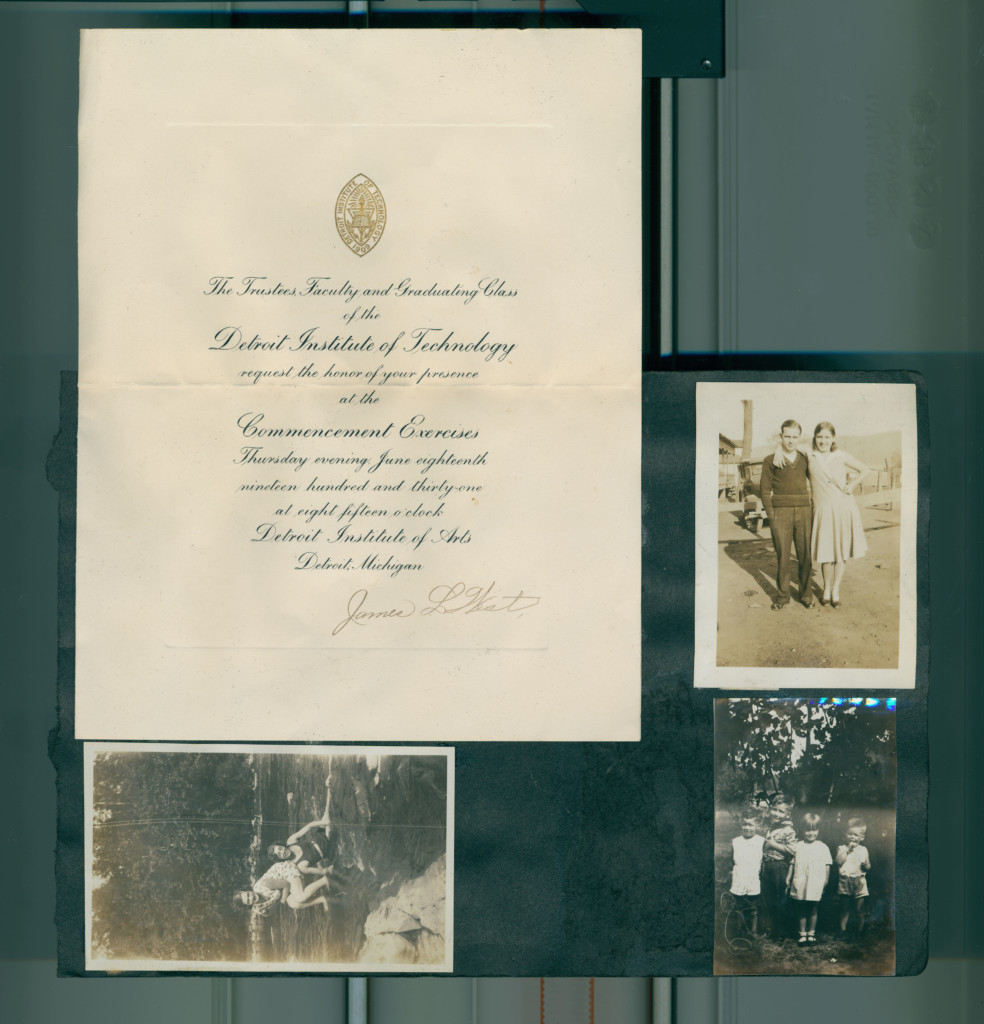 DETROIT INSTITUTE OF TECHNOLOGY
The Trustees, Faculty and Graduating Class
of the
Detroit Institute of Technology
request the honor of your presence
at the
Commencement Exercises
Thursday evening, June eighteenth
nineteen hundred and thirty-one
at eight fifteen o'clock
Detroit Institute of Arts
Detroit, Michigan
James L West,